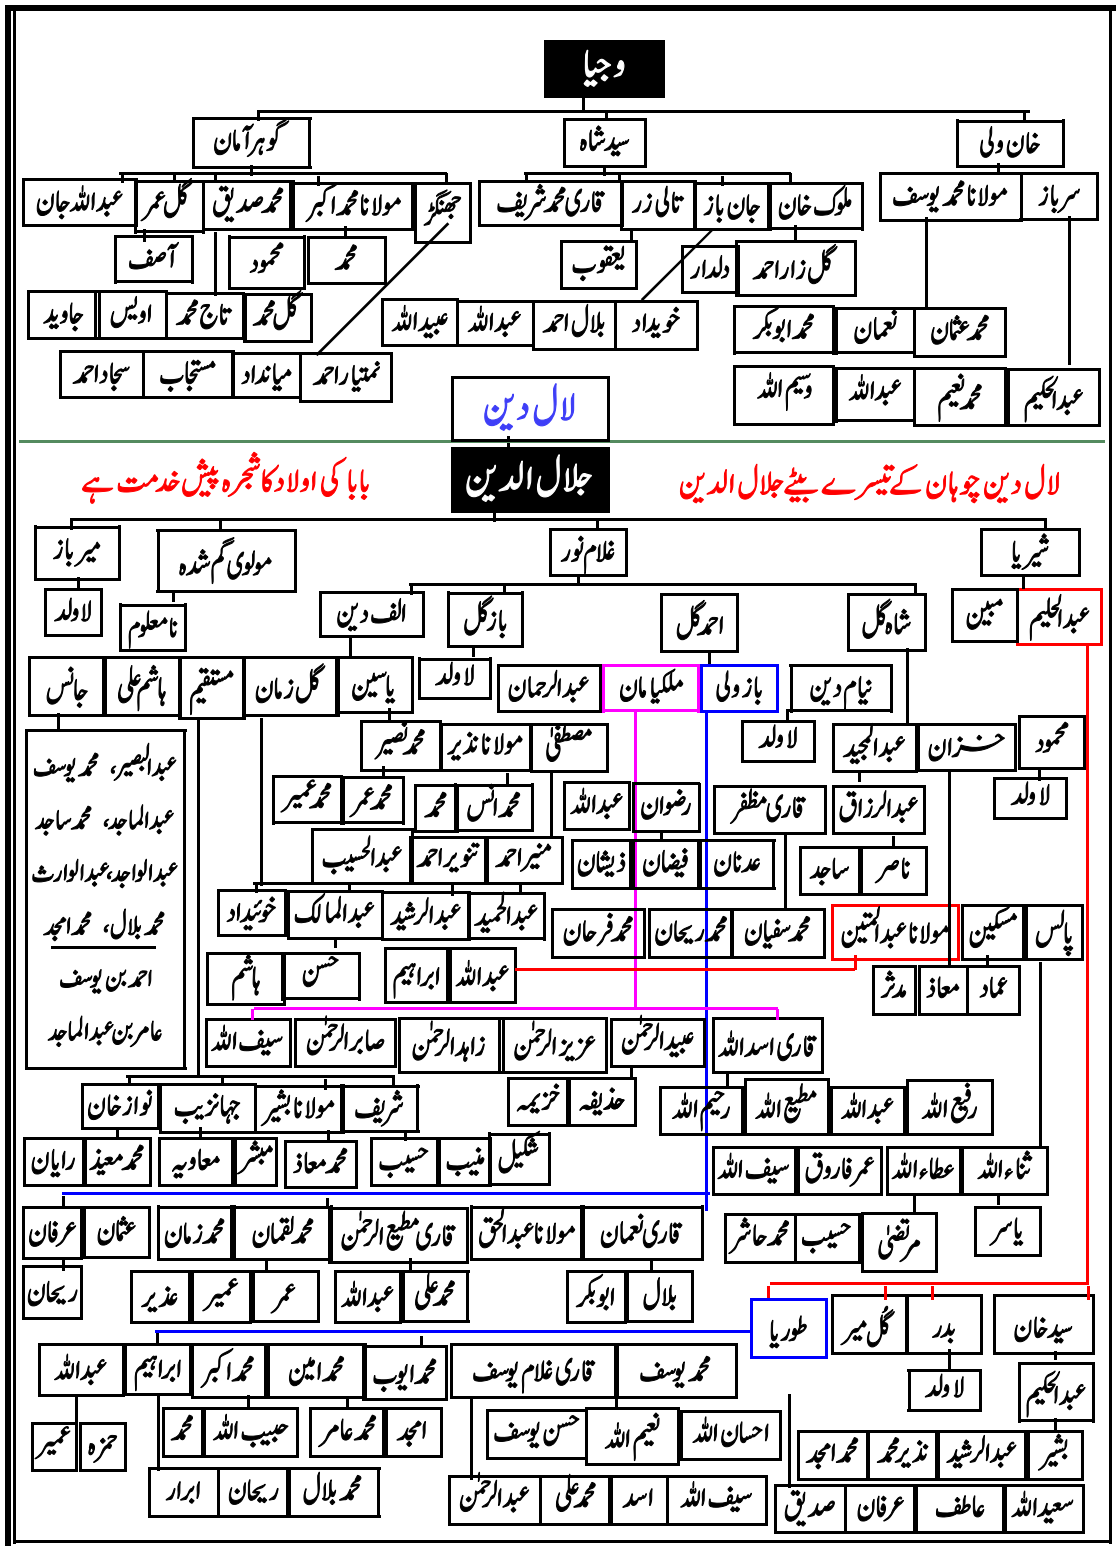 وجیا
خان ولی
سید شاہ
گوہر آمان
سرباز
مولانا محمد یوسف
ملوک خان
جان باز
تالی زر
قاری محمد شریف
جھنگڑ
مولانا محمد اکبر
محمد صدیق
گل عمر
عبداللہ جان
گل زار احمد
دلدار
یعقوب
محمد
محمود
آصف
محمد عثمان
نعمان
محمد ابوبکر
خویداد
بلال احمد
عبداللہ
عبیداللہ
گل محمد
تاج محمد
اویس
جاوید
عبدالحکیم
محمد نعیم
عبداللہ
وسیم اللہ
نمتیار احمد
میانداد
مستجاب
سجاد احمد
لال دین
لال دین چوہان کے تیسرے بیٹے جلال الدین
جلال الدین
بابا کی اولاد کا شجرہ پیش خدمت ہے
شیریا
غلام نور
مولوی گم شدہ
میرباز
عبدالحلیم
مبین
شاہ گل
احمد گل
باز گل
الف دین
نامعلوم
لاولد
نیام دین
باز ولی
ملکیامان
عبدالرحمان
لاولد
یاسین
گل زمان
مستقیم
ہاشم علی
جانس
محمود
خزان
عبدالمجید
لاولد
مصطفیٰ
مولانا نذیر
محمد نصیر
عبدالبصیر، محمد یوسف
عبدالماجد، محمد ساجد
عبدالواجد، عبدالوارث
محمد بلال، محمد امجد
احمد بن یوسف
عامر بن عبدالماجد
لاولد
عبدالرزاق
قاری مظفر
رضوان
عبداللہ
محمد انس
محمد
محمد عمر
محمد عمیر
ناصر
ساجد
عدنان
فیضان
ذیشان
منیر احمد
تنویر احمد
عبدالحسیب
پالس
مسکین
مولانا عبدالمتین
محمد سفیان
محمد ریحان
محمد فرحان
عبدالحمید
عبدالرشید
عبدالمالک
خوئیداد
عماد
معاذ
مدثر
عبداللہ
ابراہیم
حسن
ہاشم
قاری اسداللہ
عبیدالرحمٰن
عزیزالرحمٰن
زاہدالرحمٰن
صابرالرحمٰن
سیف اللہ
رفیع اللہ
عبداللہ
مطیع اللہ
رحیم اللہ
حذیفہ
خزیمہ
شریف
مولانا بشیر
جہانزیب
نواز خان
ثناءاللہ
عطاءاللہ
عمر فاروق
سیف اللہ
شکیل
منیب
حسیب
محمد معاذ
مبشر
معاویہ
محمد معیذ
رایان
یاسر
مرتضیٰ
حسیب
محمد حاشر
قاری نعمان
مولانا عبدالحق
قاری مطیع الرحمٰن
محمد لقمان
محمد زمان
عثمان
عرفان
بلال
ابوبکر
محمد علی
عبداللہ
عمر
عمیر
عذیر
ریحان
سید خان
بدر
گُل میر
طوریا
عبدالحکیم
لاولد
محمد یوسف
قاری غلام یوسف
محمد ایوب
محمد امین
محمد اکبر
ابراہیم
عبداللہ
احسان اللہ
نعیم اللہ
حسن یوسف
امجد
محمد عامر
حبیب اللہ
محمد
حمزہ
عمیر
بشیر
عبدالرشید
نذیر محمد
محمد امجد
سیف اللہ
اسد
محمد علی
عبدالرحمٰن
محمد بلال
ریحان
ابرار
سعیداللہ
عاطف
عرفان
صدیق